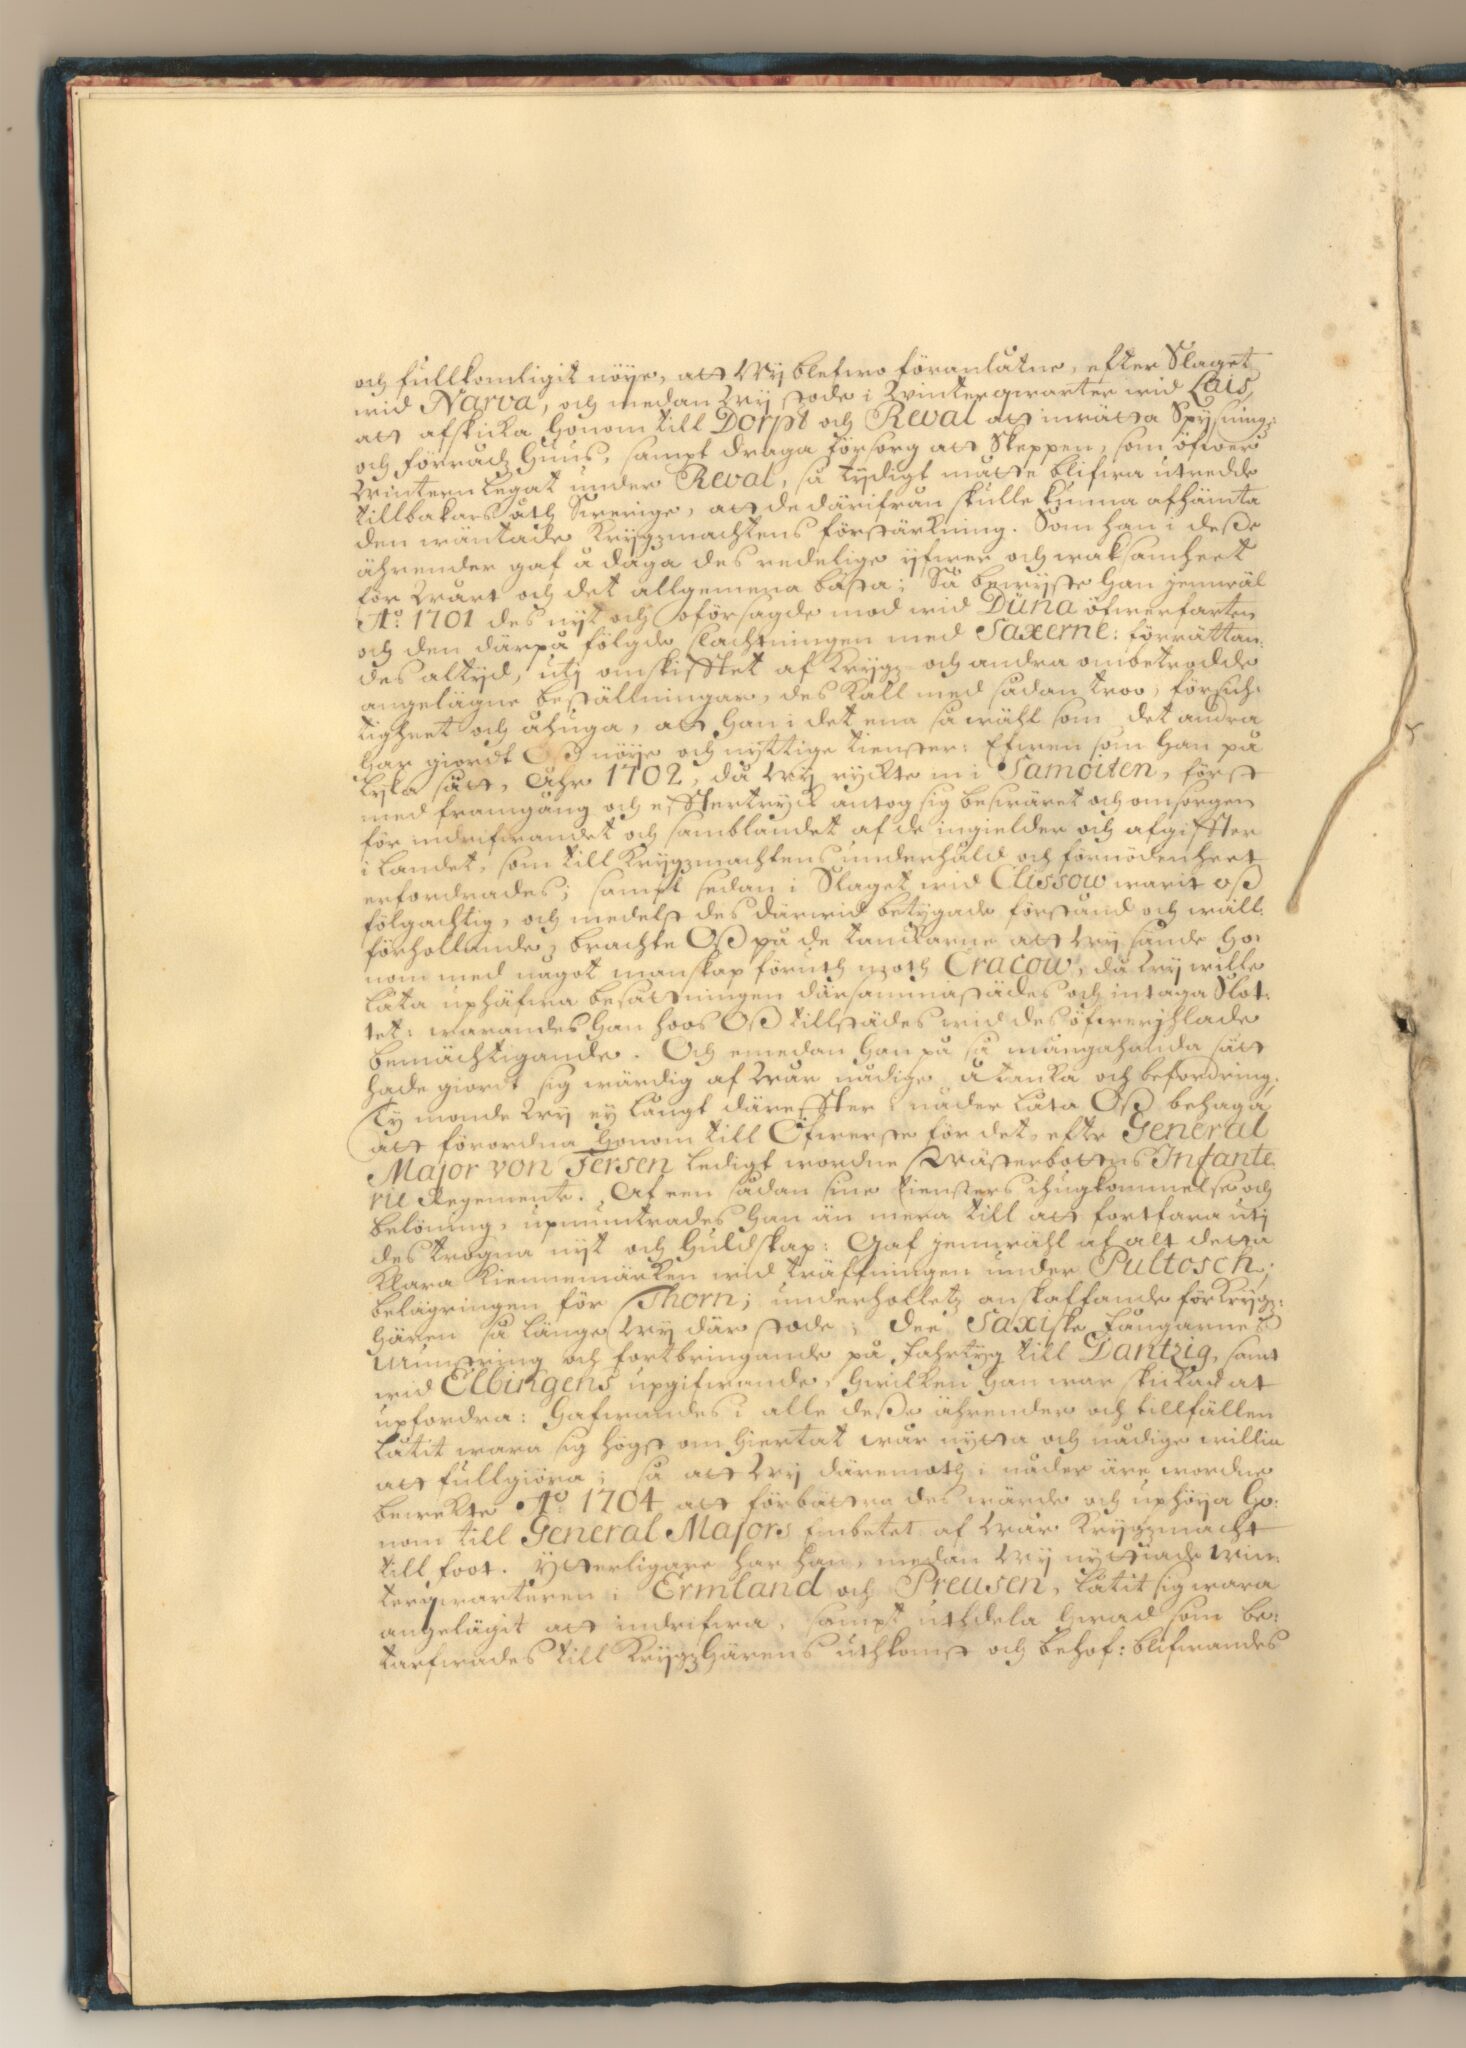 och fullkomligit nöye, att Wy blefwo föranlåtne, efter Slaget
wid Narva, och medan Wy stode i Winterqwarter wid Lais,
att afskicka honom till Dorpt och Reval att inrätta Spysning:
och förrådz huus, sampt draga försorg att Skeppen, som öfwer
Winteren legat under Reval, så tydigt måtte blifwa utredde
tillbakars åth Swerige, att de därifrån skulle kunna afhämta
den wäntade Krygzmachtens förstärkning. Som han i desse
ährender gaf å daga des redelige yfwer och waksamheet
för Wårt och det allgemena bästa; Så bewyste han jemwäl
Ao: 1701 des nyt och oförsagde mod wid Düna öfwerfarten
och den därpå fölgde slachtningen med Saxerne: förrättan:
des altyd, utj omskifftet af Krygz- och andra ombetrodde
angelägne beställningar, des Kall med sådan troo, försich:
tigheet och åhuga, att han i det ena så wähl som det andra
har giordt Oß nöye och nyttige tienster: Efwen som han på
lyka sätt, Åhr 1702, då Wy ryckte in i Samoiten, först
med framgång och efftertryck antog sig beswäret och omsorgen
för indrifwandet och samblandet af de ingielder och afgiffter
i Landet, som till Krygzmachtens underhåld och förnödenheet
erfordrades; sampt sedan i Slaget wid Clissow warit oß
fölgachtig, och medelst des därwid betygade förstånd och wäll:
förhollande, brachte Oß på de tanckarne att Wy sände ho:
nom med något manskap föruth moth Cracow, då Wy wille
låta uphäfwa besättningen därsammastädes och intaga Slot:
tet: warandes han hoos Oß tillstädes wid des öfwerjhlade
bemächtigande. Och emedan han på så mångahanda sätt
hade giordt sig wärdig af Wår nådige åtanka och befordring;
Ty monde Wy ey långt däreffter i nåder låta Oß behaga
att förordna honom till Öfwerste för det, efter General
Major von Fersen ledigt wordne Wästerbottns Infante:
rie Regemente. Af een sådan sine tiensters ihugkommelse och
belöning, upmuntrades han än mera till att fortfara utj
des trogna nyt och huldskap: Gaf jemwähl af alt detta
klara kiennemärken wid träffningen under Pultosch;
belägringen för Thorn; underholletz anskaffande för Krygz:
hären så länge Wy där stode; dee Saxiske fångarnes
Munstring och fortbringande på fahrtyg till Dantzig, samt
wid Elbingens upgifwande, hwilken han war skickad at
upfordra: hafwandes i alle desse ährender och tillfällen
låtit wara sig högst om hiertat wår nytta och nådige willia
att fullgiöra; så att Wy däremoth i nåder äre wordne
bewekte Ao: 1704 att förbättra des wärde och uphöya ho:
nom till General Majors Embetet af Wår Krygzmacht
till foot. Ytterligare har han, medan Wy nyttiade win:
terqwarteren i Ermland och Preusen, låtit sig wara
angelägit att indrifwa, sampt uthdela hwad som be:
tarfwades till Krygzhärens uthkomst och behof: blifwandes